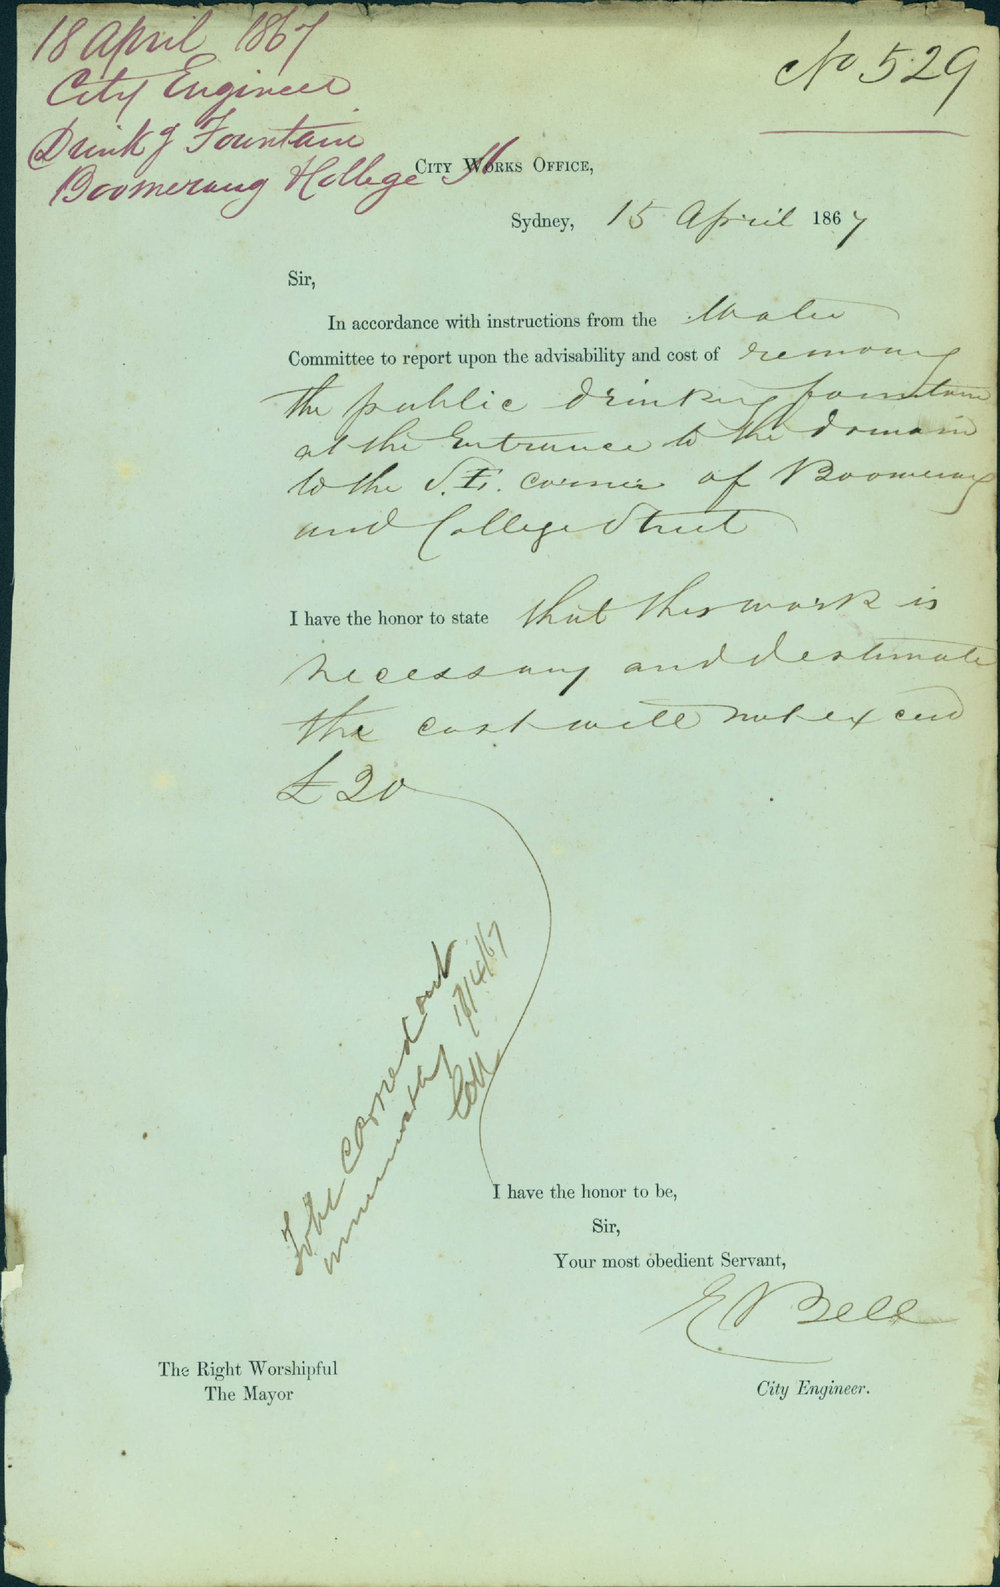 18 April 1867
City Engineer
Drinkg Fountain
Boomerang & College St
No 529
CITY WORKS OFFICE,
Sydney, 15 April 1867
Sir,
In accordance with instructions from the Water
Committee to report upon the advisability and cost of removing
the public drinking fountain
at the Entrance to the domain
to the S.E. corner of Boomerang
and College Street
I have the honor to state that this work is
necessary and I estimate
the cost will not exceed
£20
To be carried out
immediately 17/4/67
I have the honor to be,
Sir,
Your most obedient Servant,
E Bell
City Engineer.
The Right Worshipful
The Mayor